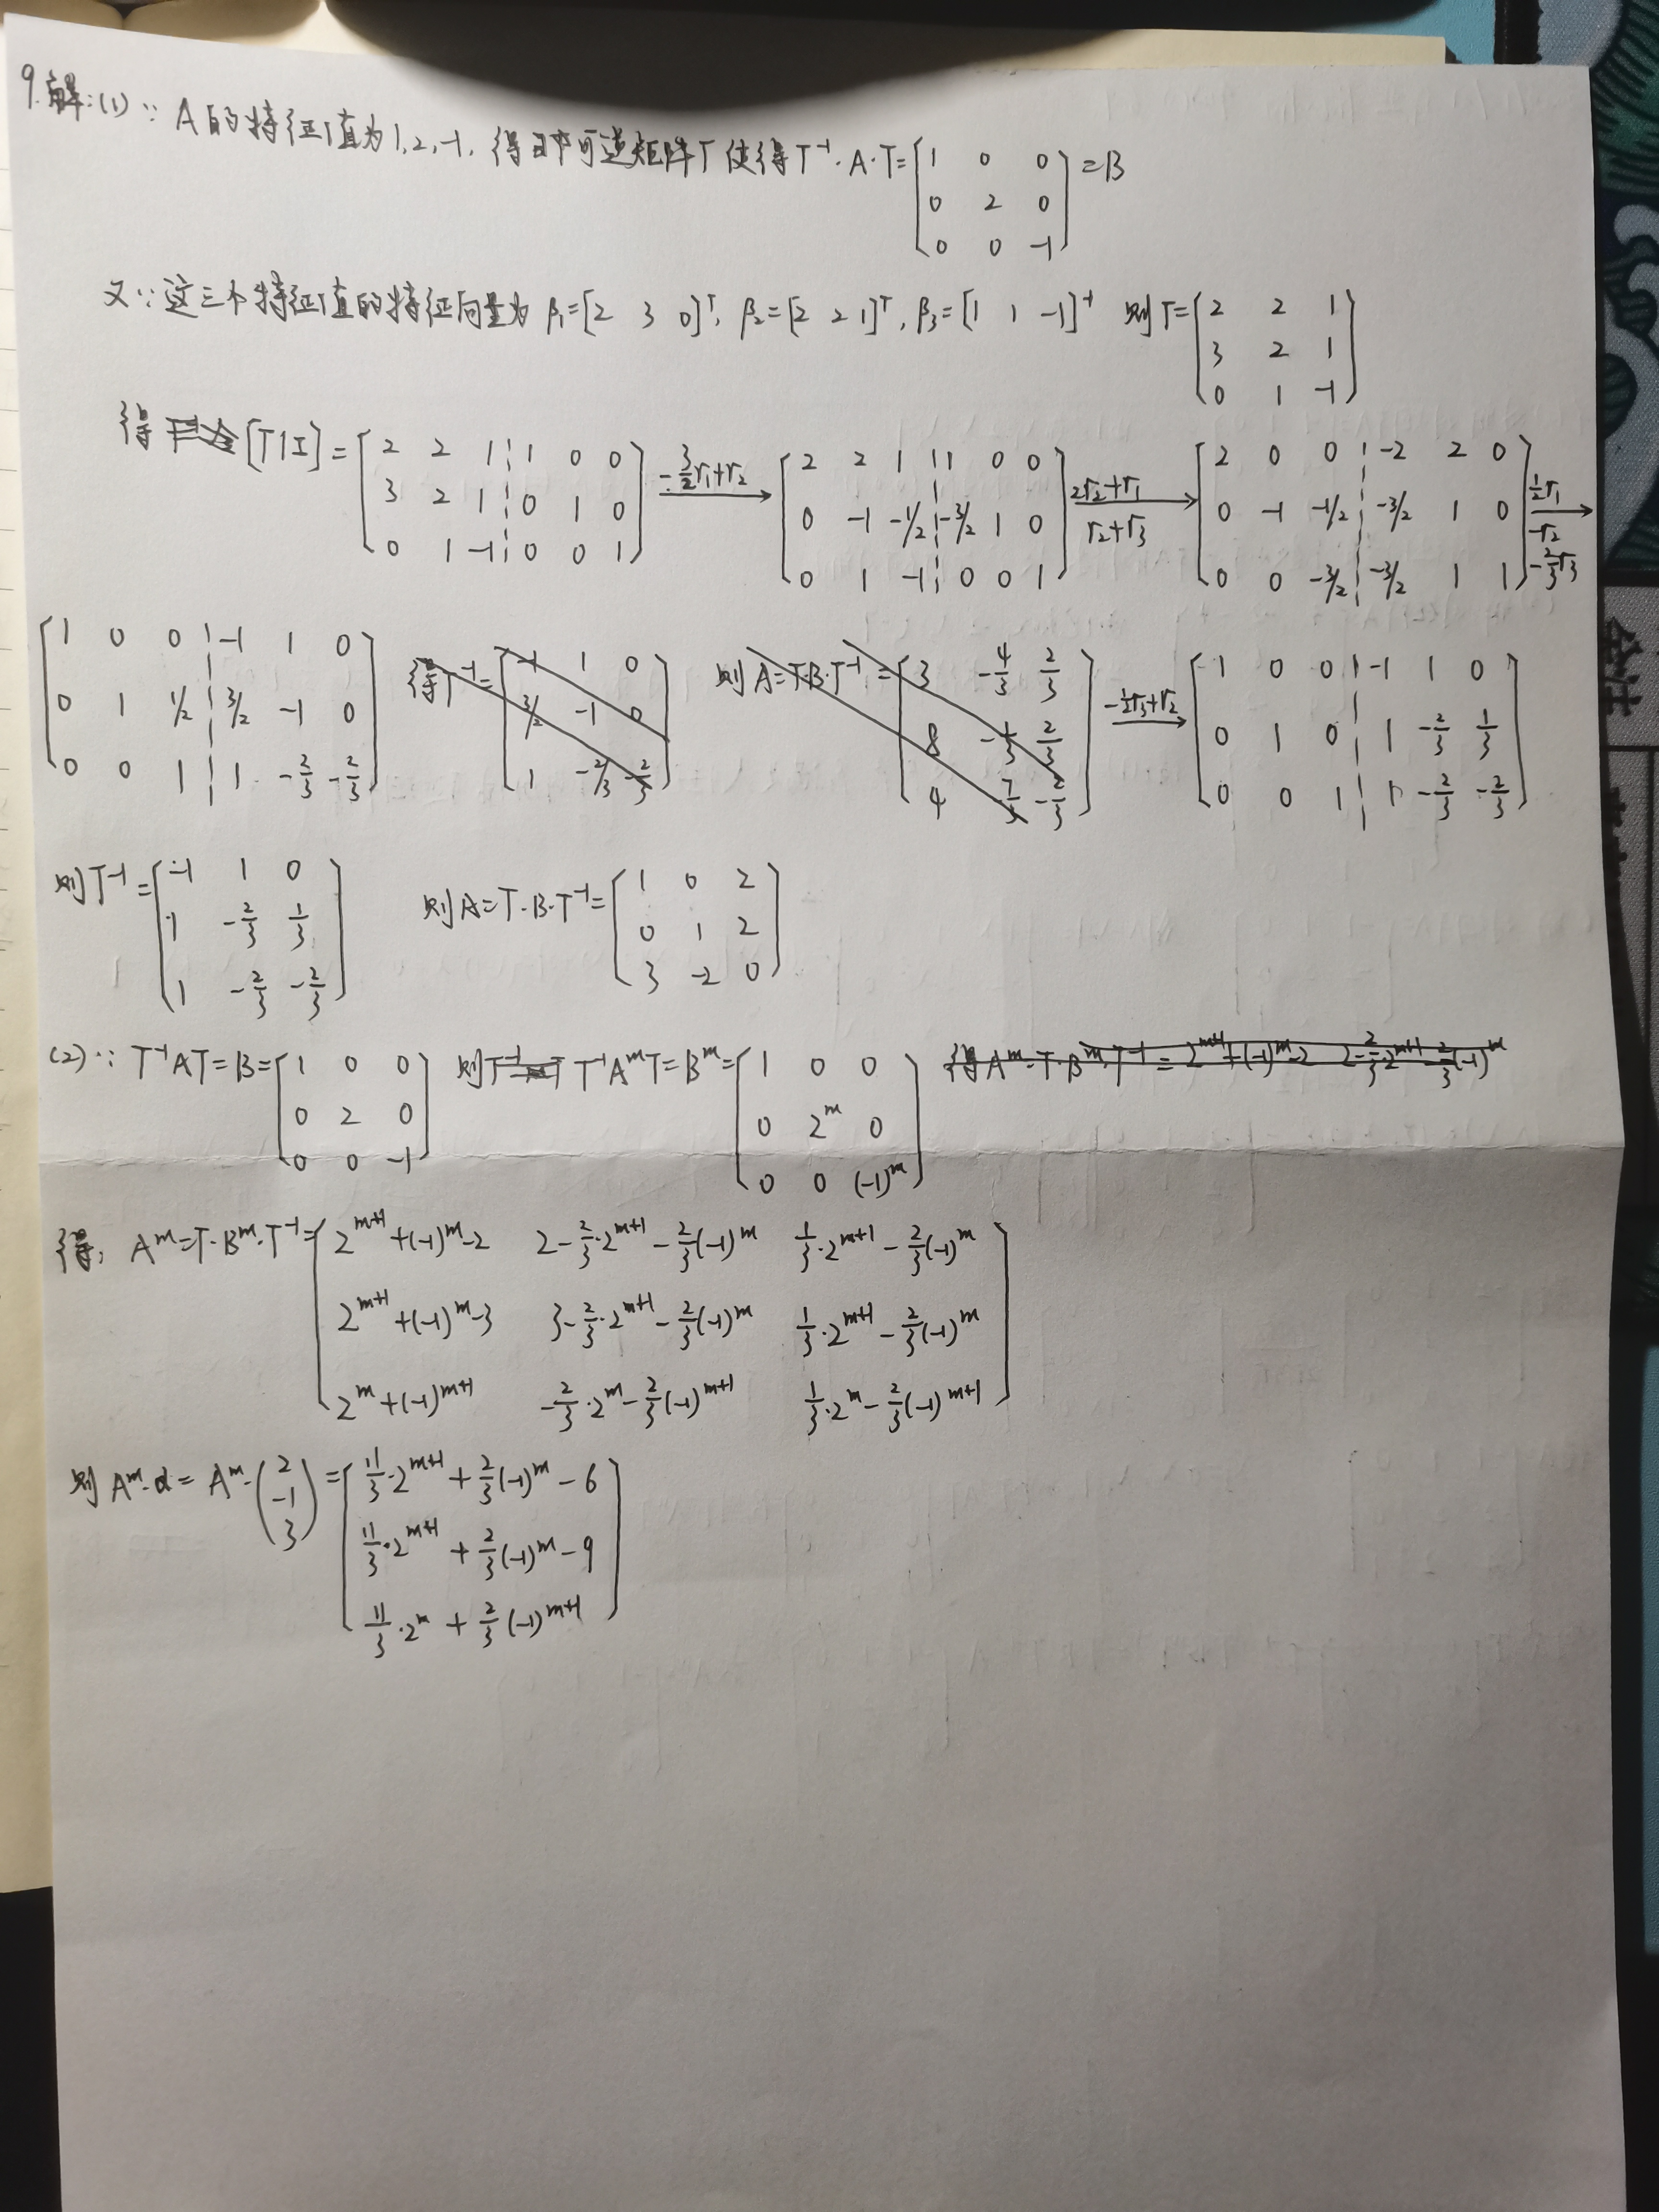 9.解:(1)∵A的特征值为1,2,-1,得 可逆矩阵T使得T⁻¹·A·T=[1 0 0; 0 2 0; 0 0 -1]=B
又∵这三个特征值的特征向量为β₁=[2 3 0]ᵀ, β₂=[2 2 1]ᵀ, β₃=[1 1 -1]ᵀ 则T=[2 2 1; 3 2 1; 0 1 -1]
得 [T|I]=[2 2 1 | 1 0 0; 3 2 1 | 0 1 0; 0 1 -1 | 0 0 1] -3/2r₁+r₂→ [2 2 1 | 1 0 0; 0 -1 -1/2 | -3/2 1 0; 0 1 -1 | 0 0 1] 2r₂+r₁ r₂+r₃→ [2 0 0 | -2 2 0; 0 -1 -1/2 | -3/2 1 0; 0 0 -3/2 | -3/2 1 1] 1/2r₁ -r₂ -2/3r₃→
[1 0 0 | -1 1 0; 0 1 1/2 | 3/2 -1 0; 0 0 1 | 1 -2/3 -2/3] 得T⁻¹=[-1 1 0; 3/2 -1 0; 1 -2/3 -2/3] 则A=T·B·T⁻¹ -1/2r₃+r₂→ [1 0 0 | -1 1 0; 0 1 0 | 1 -2/3 1/3; 0 0 1 | 1 -2/3 -2/3]
则T⁻¹=[-1 1 0; 1 -2/3 1/3; 1 -2/3 -2/3] 则A=T·B·T⁻¹=[1 0 2; 0 1 2; 3 -2 0]
(2)∵T⁻¹AT=B=[1 0 0; 0 2 0; 0 0 -1] 则 T⁻¹AᵐT=Bᵐ=[1 0 0; 0 2ᵐ 0; 0 0 (-1)ᵐ] 得Aᵐ=T·Bᵐ·T⁻¹=2ᵐ⁺¹+(-1)ᵐ-2 2-2/3·2ᵐ⁺¹-2/3(-1)ᵐ
得, Aᵐ=T·Bᵐ·T⁻¹=[2ᵐ⁺¹+(-1)ᵐ-2 2-2/3·2ᵐ⁺¹-2/3(-1)ᵐ 1/3·2ᵐ⁺¹-2/3(-1)ᵐ
2ᵐ⁺¹+(-1)ᵐ-3 3-2/3·2ᵐ⁺¹-2/3(-1)ᵐ 1/3·2ᵐ⁺¹-2/3(-1)ᵐ
2ᵐ+(-1)ᵐ⁺¹ -2/3·2ᵐ-2/3(-1)ᵐ⁺¹ 1/3·2ᵐ-2/3(-1)ᵐ⁺¹]
则Aᵐ·α=Aᵐ·(2 -1 3)=[11/3·2ᵐ⁺¹+2/3(-1)ᵐ-6
11/3·2ᵐ⁺¹+2/3(-1)ᵐ-9
11/3·2ᵐ+2/3(-1)ᵐ⁺¹]